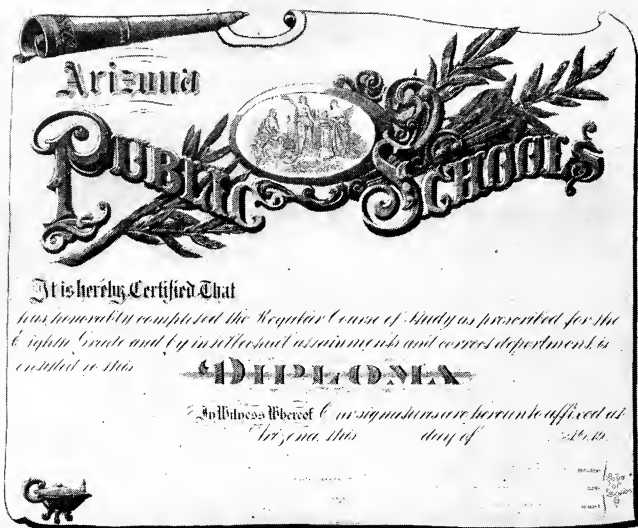 Arizona
PUBLIC SCHOOLS
It is hereby Certified That
has honorably completed the Regular Course of Study as prescribed for the
Eighth Grade and by intellectual attainments and correct deportment, is
entitled to this
DIPLOMA
In Witness Whereof Our signatures are hereunto affixed at
Arizona, this day of 19